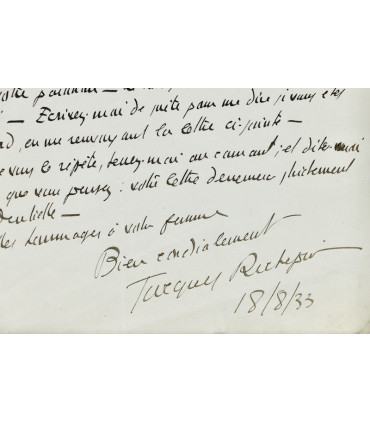 — Écrivez-moi de suite pour me dire si vous êtes
en me renvoyant la lettre ci-jointe —
vous le répète, tenez-moi au courant, et dites-moi
que vous pensez : votre lettre demeurera strictement
dentielle —
hommages à votre femme
Bien cordialement
Jacques Richepin
18/8/33